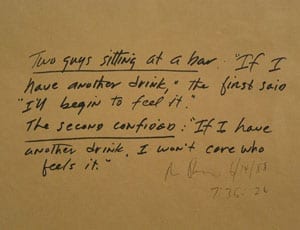 Two guys sitting at a bar: "If I
have another drink," the first said
"I'll begin to feel it."
The second confided: "If I have
another drink, I won't care who
feels it."